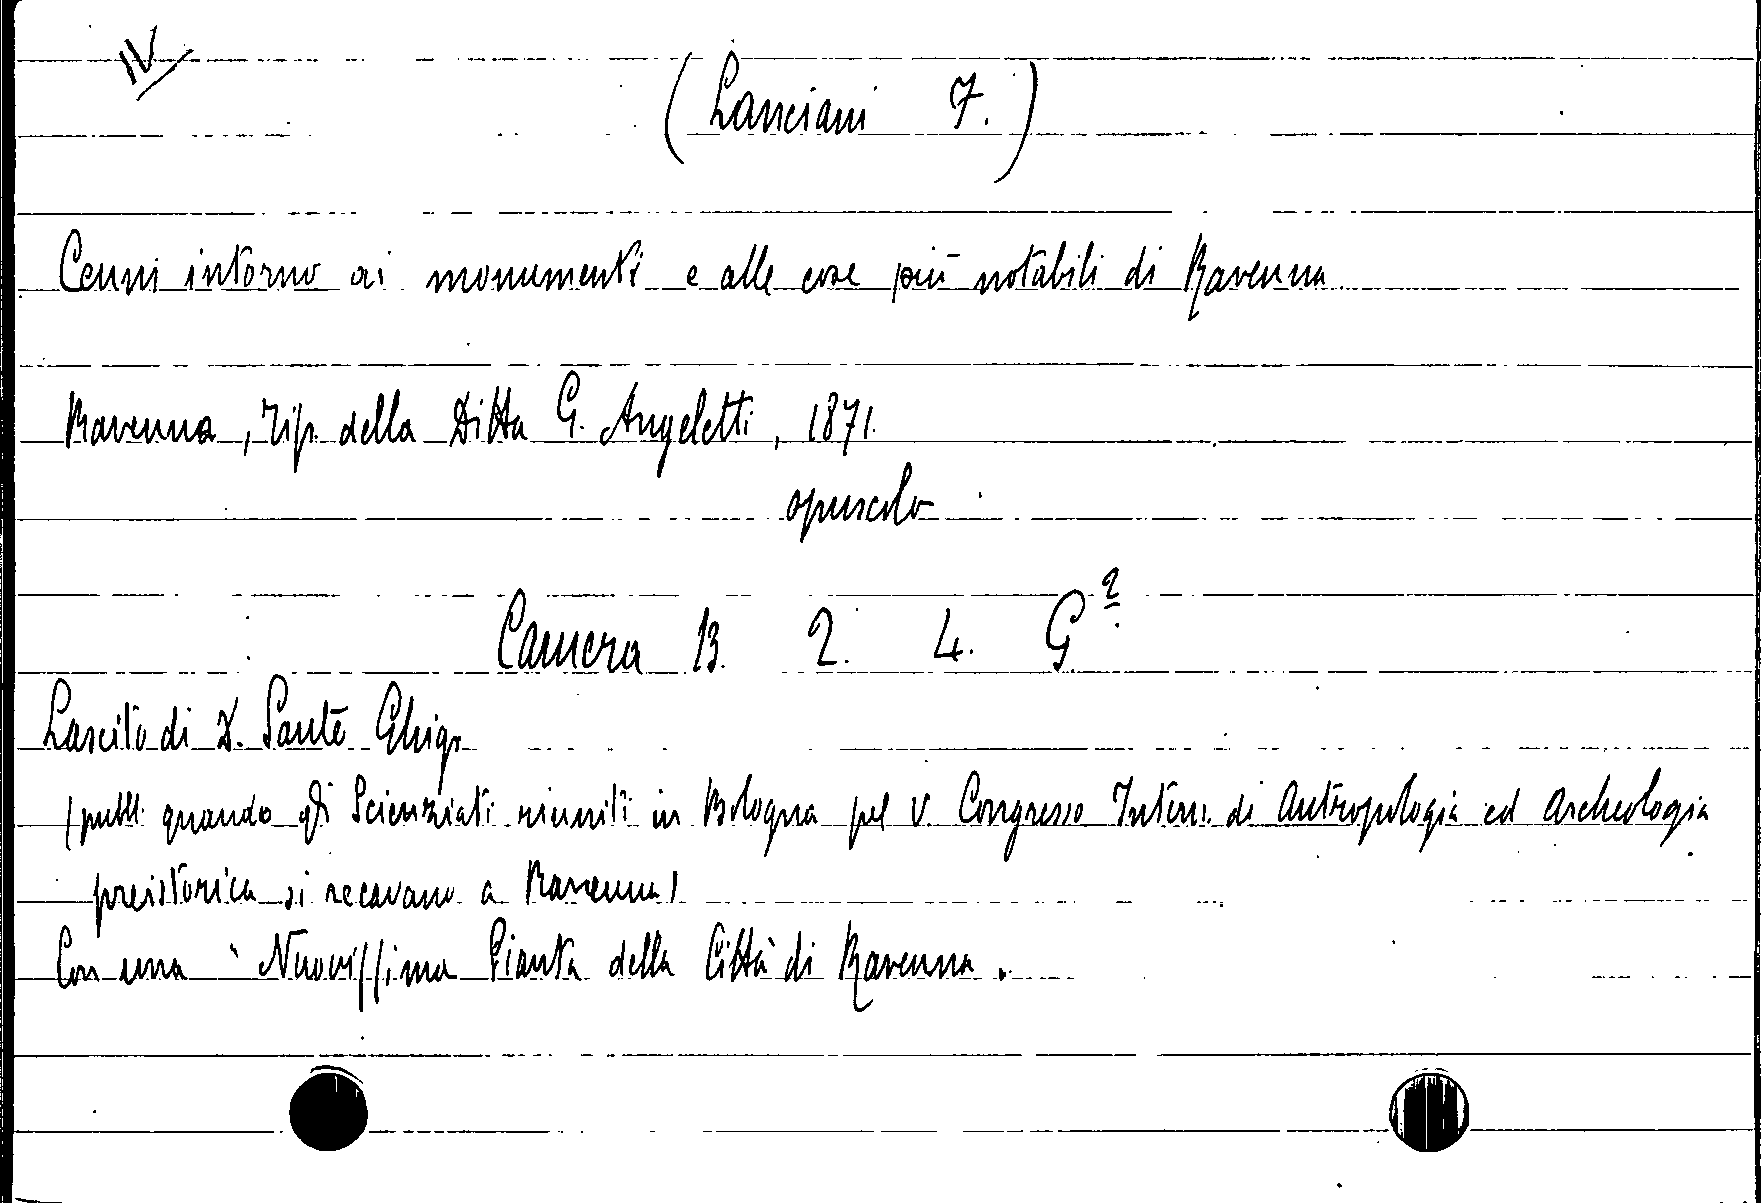 IV
(Lanciani F.)
Cenni intorno ai monumenti e alle cose più notabili di Ravenna
Ravenna, Tip. della Ditta G. Angeletti, 1871.
opuscolo
Camera B. 2. 4. G²
Lascito di D. Sante Ghigi
(pubbl. quando gli Scienziati riuniti in Bologna pel V. Congresso Intern. di Antropologia ed Archeologia
preistorica si recavano a Ravenna)
Con una "Nuovissima Pianta della Città di Ravenna.